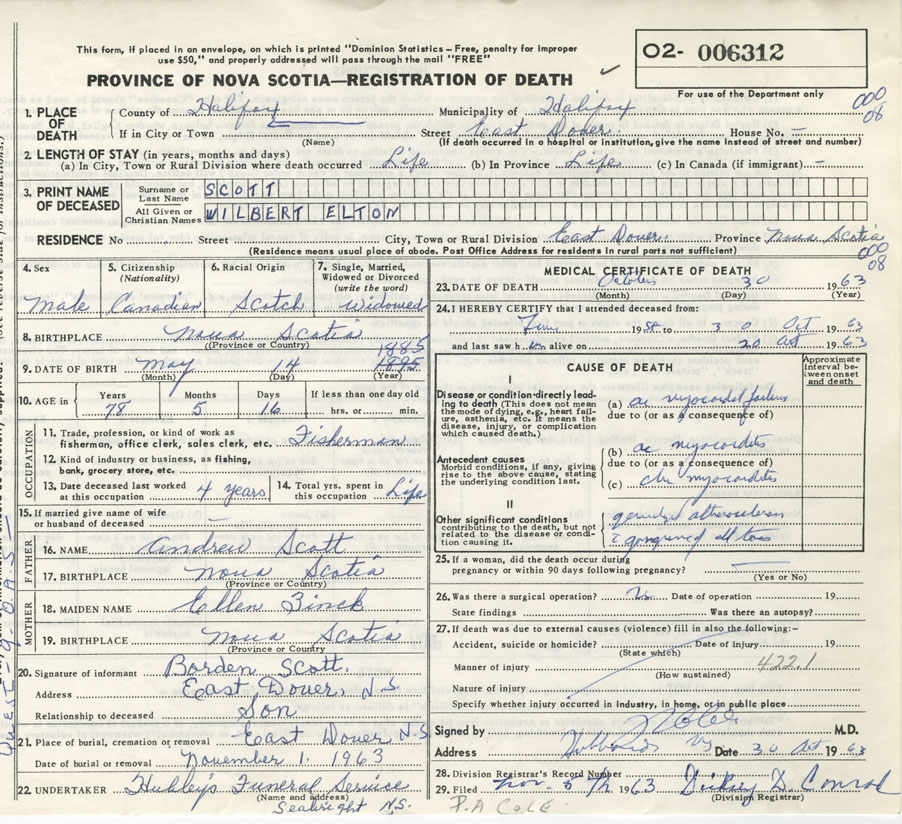 This form, if placed in an envelope, on which is printed "Dominion Statistics – Free, penalty for improper
use $50," and properly addressed will pass through the mail "FREE"
O2- 006312
For use of the Department only
PROVINCE OF NOVA SCOTIA—REGISTRATION OF DEATH
000
08
1. PLACE OF DEATH
County of Halifax
Municipality of Halifax
If in City or Town
(Name)
Street East Dover House No. –
(If death occurred in a hospital or institution, give the name instead of street and number)
2. LENGTH OF STAY (in years, months and days)
(a) In City, Town or Rural Division where death occurred Life (b) In Province Life (c) In Canada (if immigrant) –
3. PRINT NAME OF DECEASED
Surname or Last Name SCOTT
All Given or Christian Names WILBERT ELTON
RESIDENCE No Street City, Town or Rural Division East Dover. Province Nova Scotia
(Residence means usual place of abode. Post Office Address for residents in rural parts not sufficient)
000
08
4. Sex
Male
5. Citizenship (Nationality)
Canadian
6. Racial Origin
Scotch
7. Single, Married, Widowed or Divorced (write the word)
widowed
8. BIRTHPLACE Nova Scotia
(Province or Country)
1885
9. DATE OF BIRTH May 14 1895
(Month) (Day) (Year)
10. AGE in
Years 78
Months 5
Days 16
If less than one day old
hrs. or min.
OCCUPATION
11. Trade, profession, or kind of work as
fisherman, office clerk, sales clerk, etc. Fisherman
12. Kind of industry or business, as fishing,
bank, grocery store, etc.
13. Date deceased last worked
at this occupation 4 years
14. Total yrs. spent in
this occupation Life
15. If married give name of wife
or husband of deceased –
FATHER
16. NAME Andrew Scott
17. BIRTHPLACE Nova Scotia
(Province or Country)
MOTHER
18. MAIDEN NAME Ellen Zinck
19. BIRTHPLACE Nova Scotia
(Province or Country)
20. Signature of informant Borden Scott.
Address East Dover, N.S
Relationship to deceased Son
21. Place of burial, cremation or removal East Dover N.S.
Date of burial or removal November 1. 1963
22. UNDERTAKER Hubley's Funeral Service
(Name and address)
Seabright N.S.
MEDICAL CERTIFICATE OF DEATH
23. DATE OF DEATH October 30 1963
(Month) (Day) (Year)
24. I HEREBY CERTIFY that I attended deceased from:
1958 to 30 Oct 1963
and last saw him alive on 20 Oct 1963
CAUSE OF DEATH
Approximate interval between onset and death
I
Disease or condition directly leading to death (This does not mean the mode of dying, e.g., heart failure, asthenia, etc. It means the disease, injury, or complication which caused death.)
(a) ac myocardial failure
due to (or as a consequence of)
Antecedent causes
Morbid conditions, if any, giving rise to the above cause, stating the underlying condition last.
(b) ac myocarditis
due to (or as a consequence of)
(c) chr myocarditis
II
Other significant conditions
contributing to the death, but not related to the disease or condition causing it.
atherosclerosis
all toes
25. If a woman, did the death occur during
pregnancy or within 90 days following pregnancy? –
(Yes or No)
26. Was there a surgical operation? No Date of operation 19
State findings Was there an autopsy?
27. If death was due to external causes (violence) fill in also the following:–
Accident, suicide or homicide? Date of injury 19
(State which)
Manner of injury 422.1
(How sustained)
Nature of injury
Specify whether injury occurred in Industry, in home, or in public place
Signed by M.D.
Address Date 30 Oct 1963
28. Division Registrar's Record Number
29. Filed Nov. 1963 D. Conrad
(Division Registrar)
P.A COLE